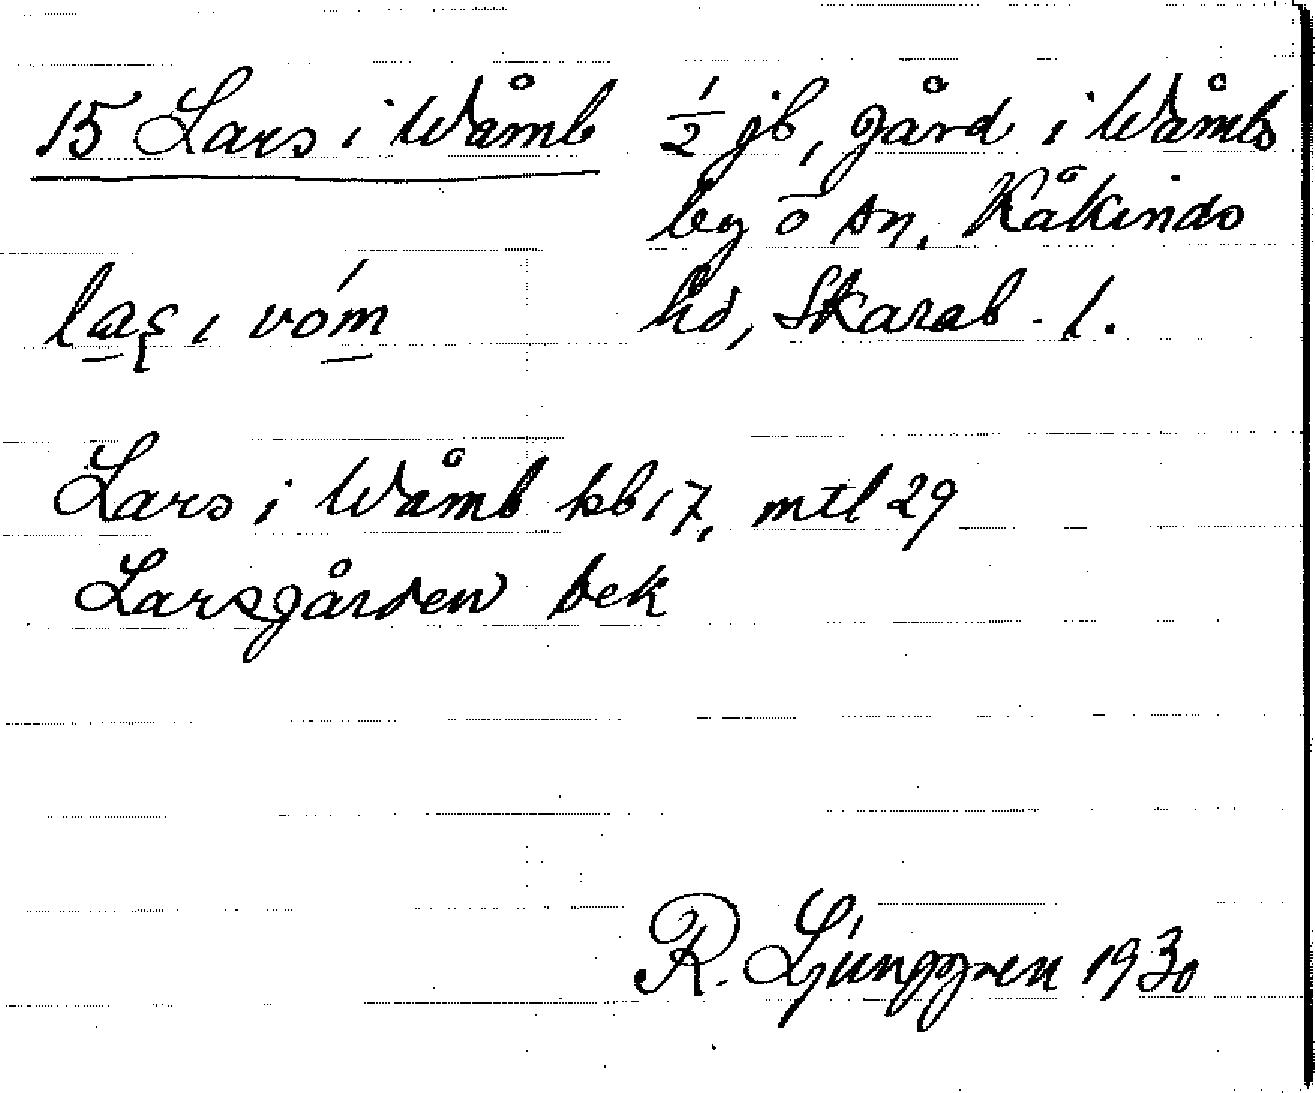 15 Lars i Wåmb
½ jb, gård i Wåmbs
by o sn, Kåkinds
hd, Skarab. l.
laʂ ı vóm
Lars i Wåmb kb 17, mtl 29
Larsgården bek
R. Ljunggren 1930